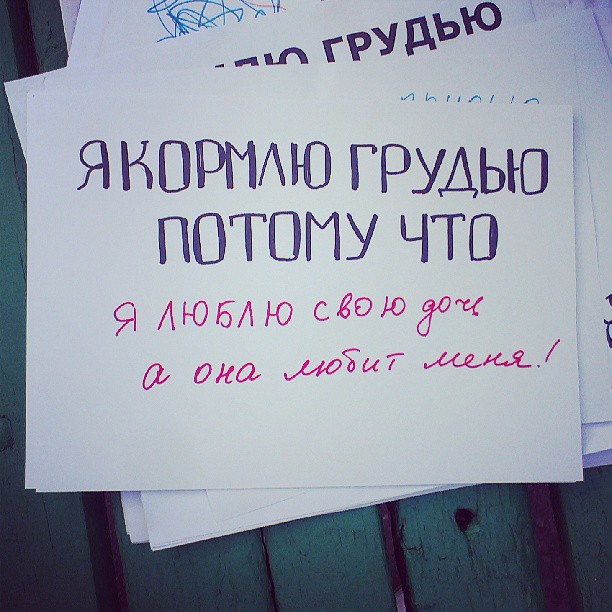 ЛЮ ГРУДЬЮ
Я КОРМЛЮ ГРУДЬЮ
ПОТОМУ ЧТО
Я ЛЮБЛЮ СВОЮ дочь
а она любит меня!